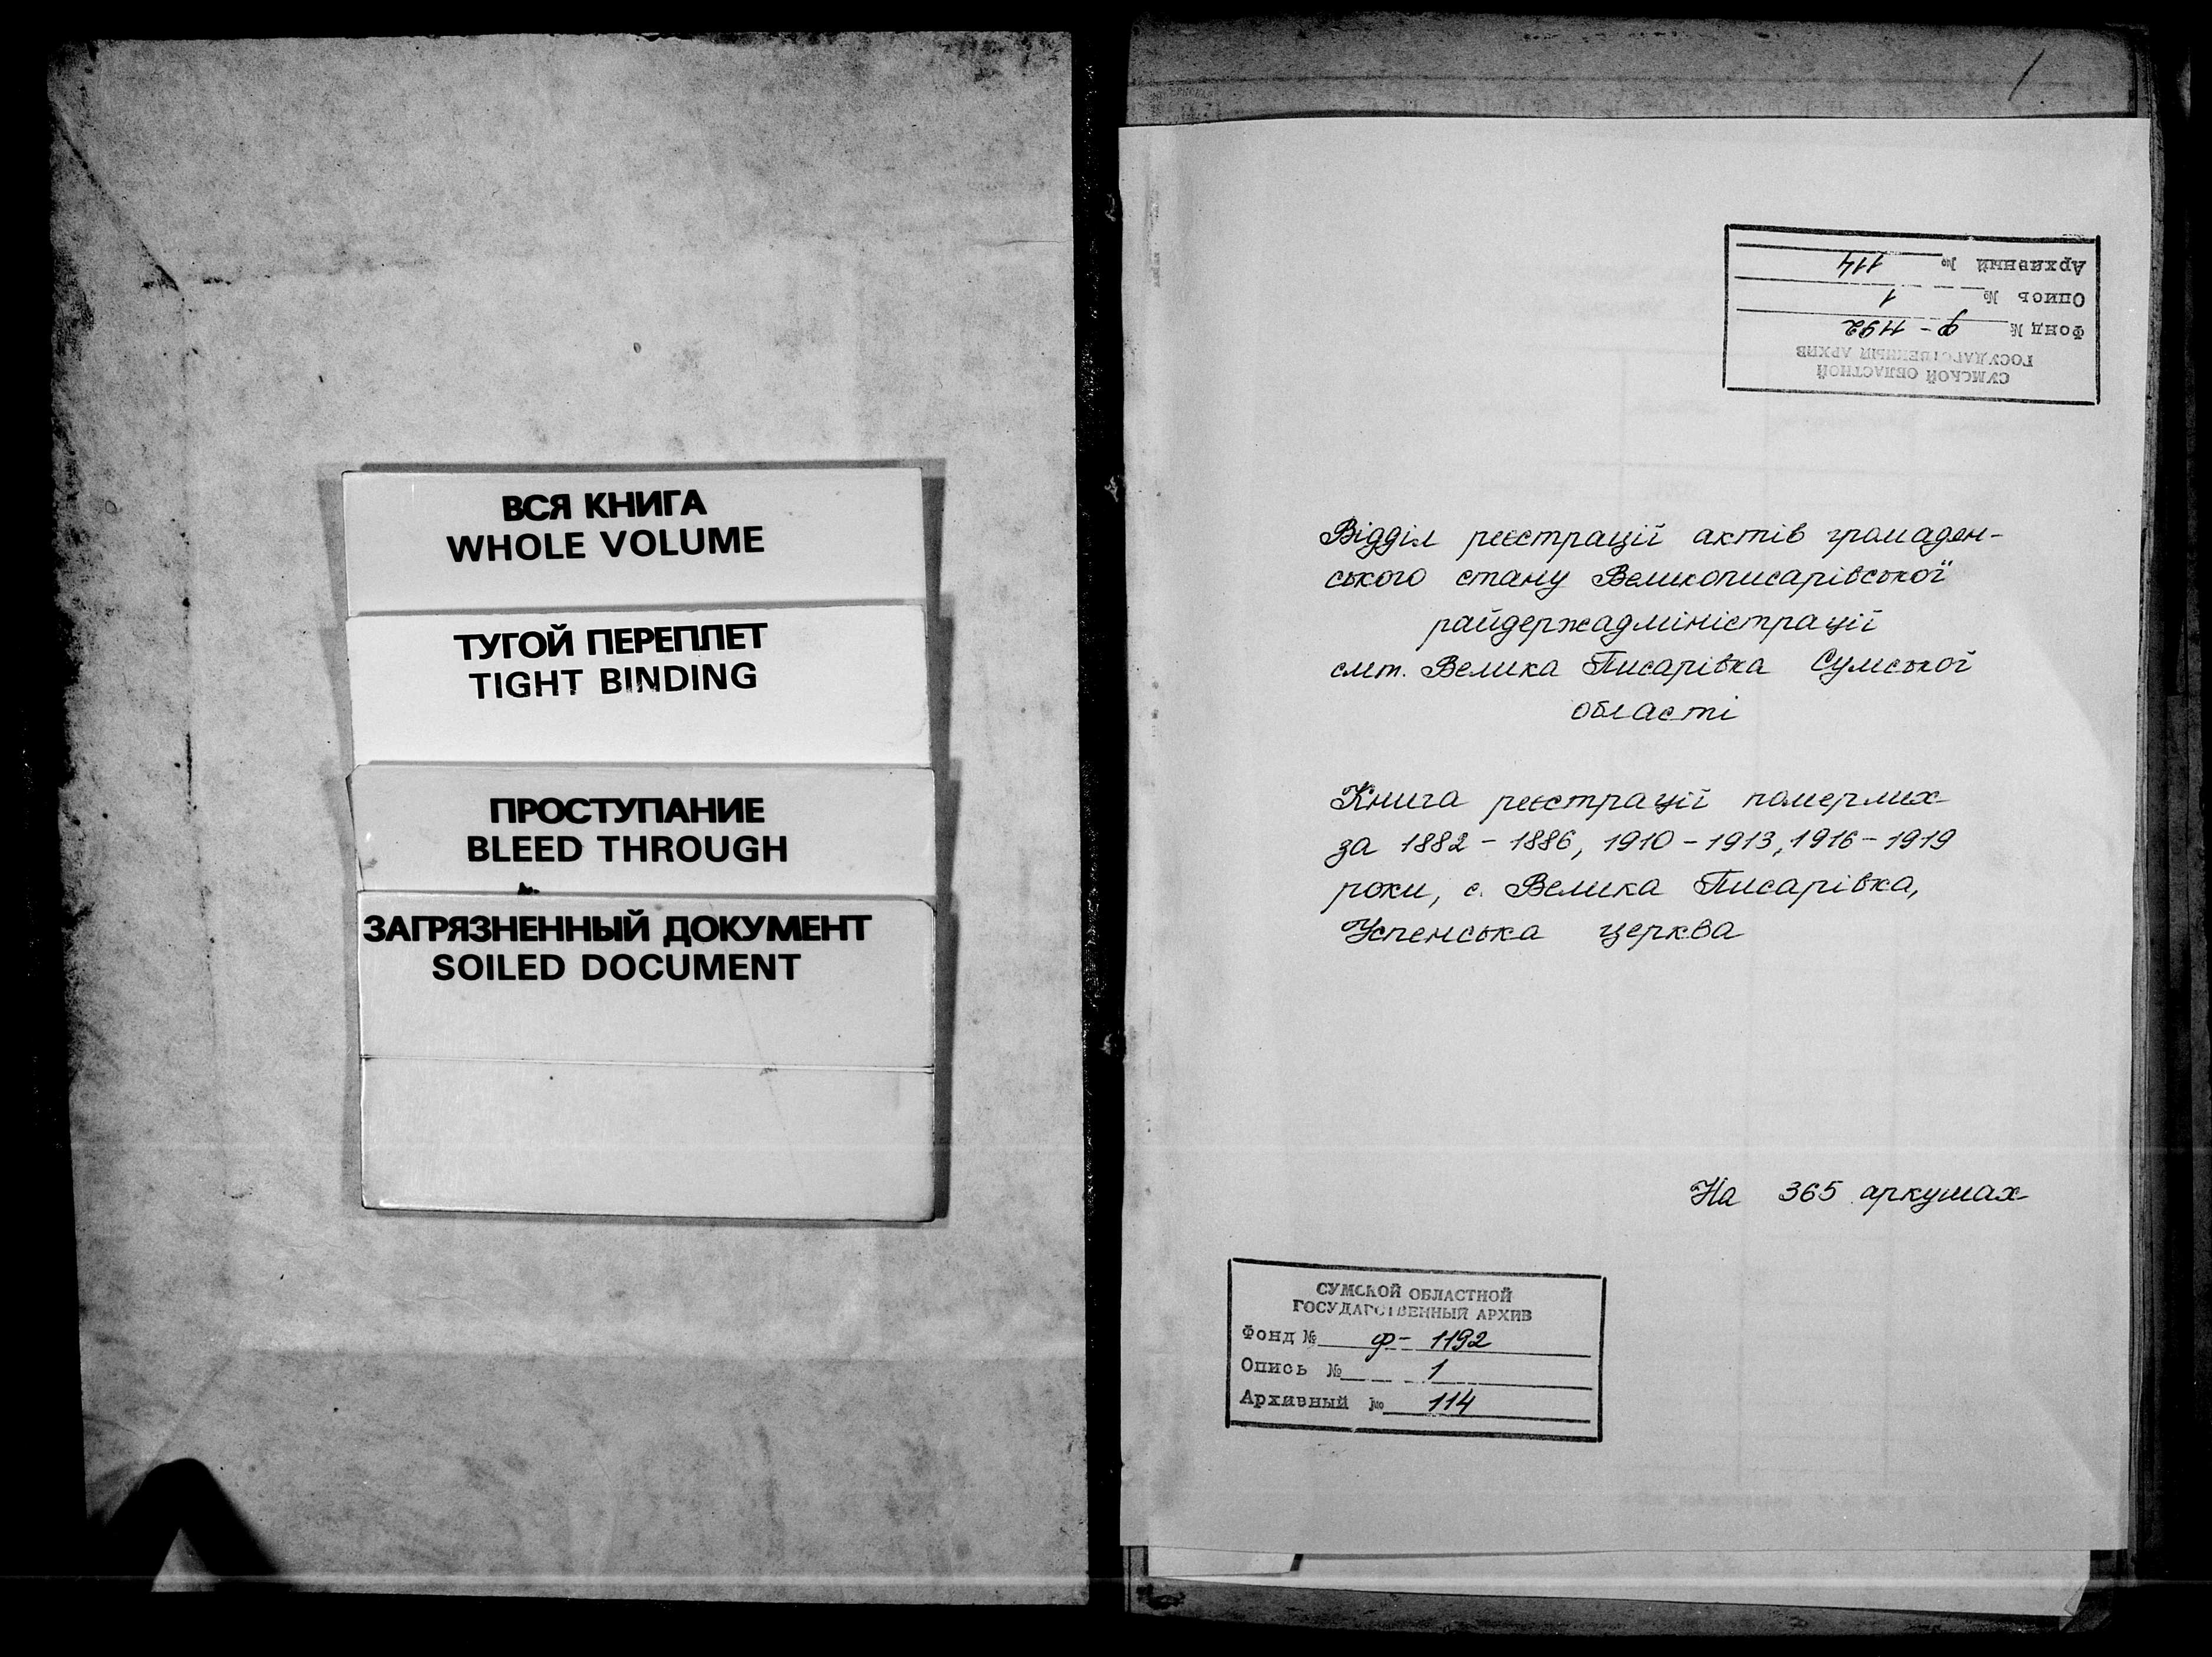 ВСЯ КНИГА
WHOLE VOLUME
ТУГОЙ ПЕРЕПЛЕТ
TIGHT BINDING
ПРОСТУПАНИЕ
BLEED THROUGH
ЗАГРЯЗНЕННЫЙ ДОКУМЕНТ
SOILED DOCUMENT
/
СУМСКОЙ ОБЛАСТНОЙ
ГОСУДАРСТВЕННЫЙ АРХИВ
Фонд № ф- 1192
Опись № 1
Архивный № 114
Відділ реєстрації актів громаден-
ського стану Великописарівської
райдержадміністрації
смт. Велика Писарівка Сумської
області
Книга реєстрації померлих
за 1882 - 1886, 1910 - 1913, 1916 - 1919
роки, с. Велика Писарівка,
Успенська церква
На 365 аркушах
СУМСКОЙ ОБЛАСТНОЙ
ГОСУДАРСТВЕННЫЙ АРХИВ
Фонд № ф- 1192
Опись № 1
Архивный № 114